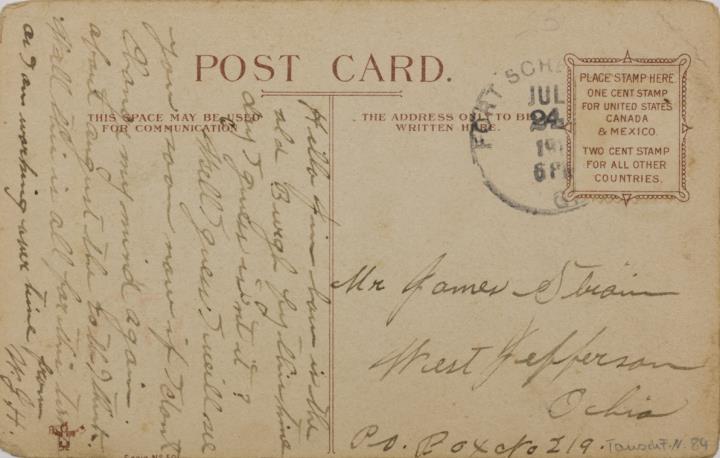 POST CARD.
THIS SPACE MAY BE USED
FOR COMMUNICATION
THE ADDRESS ONLY TO BE
WRITTEN HERE.
PLACE STAMP HERE
ONE CENT STAMP
FOR UNITED STATES
CANADA
& MEXICO.
TWO CENT STAMP
FOR ALL OTHER
COUNTRIES.
JUL
24
191
6 PM
Hello Jim how is the
old Burgh by this time
day I guess isn't it?
Well I guess I will see
you soon now if I dont
Change my mind again
about August the I think.
Well this is all for this time
as I am working over time, from
W.J.H.
Mr James Strain
West Jefferson
Ohio
P.O. Box No 219.